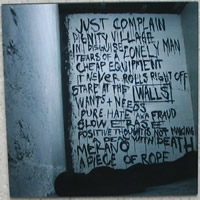 JUST COMPLAIN
DIGNITY VILLAGE
IN DISGUISE
TEARS OF A LONELY MAN
CHEAP EQUIPMENT
IT NEVER ROLLS RIGHT OFF
STARE AT THE WALLS
WANTS + NEEDS
PURE HATE AKA FRAUD
SLOW ERASE
POSITIVE THOUGHT IS NOT MAKING
WITH DEATH
MELANO
A PIECE OF ROPE